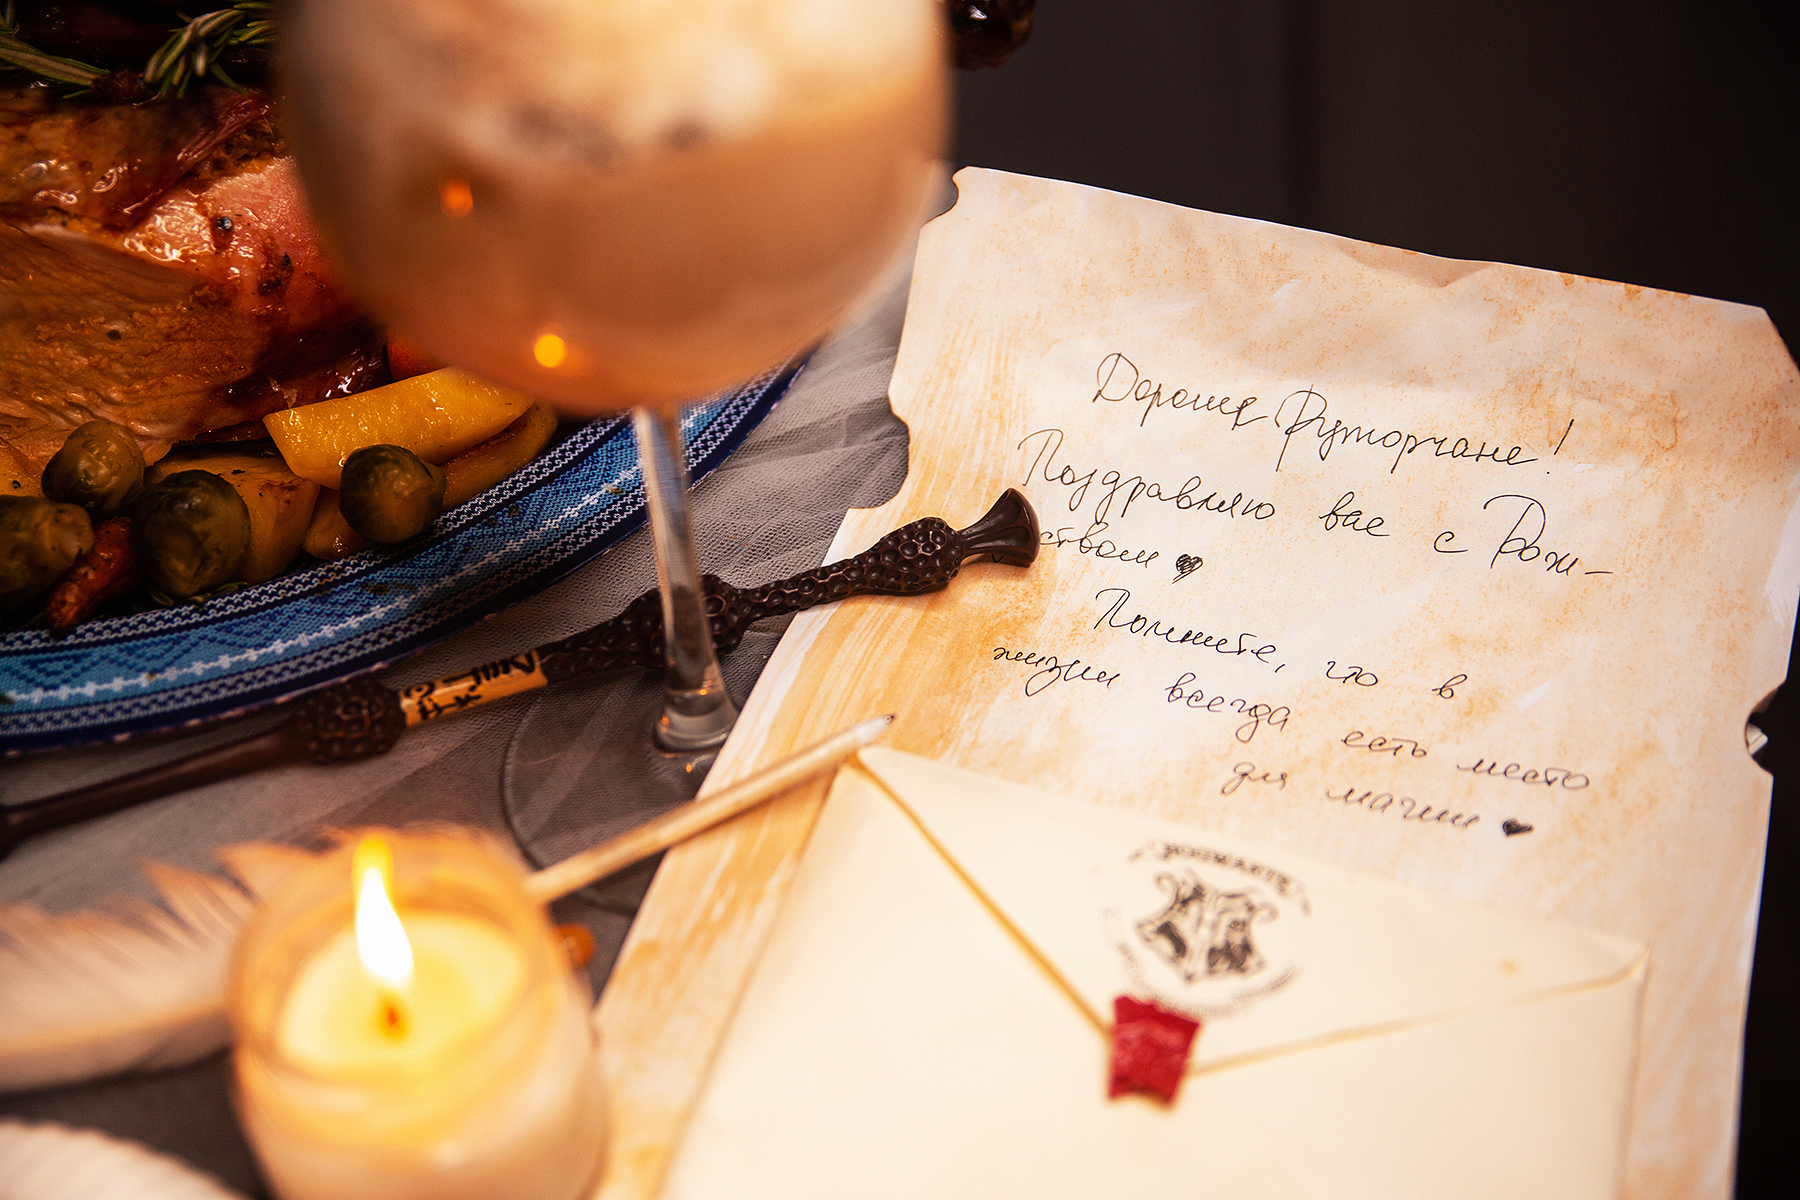 Дорогие Футорчане!
Поздравляю вас с Рож-
ством ♥
Помните, что в
жизни всегда есть место
для магии ♥
HOGWARTS